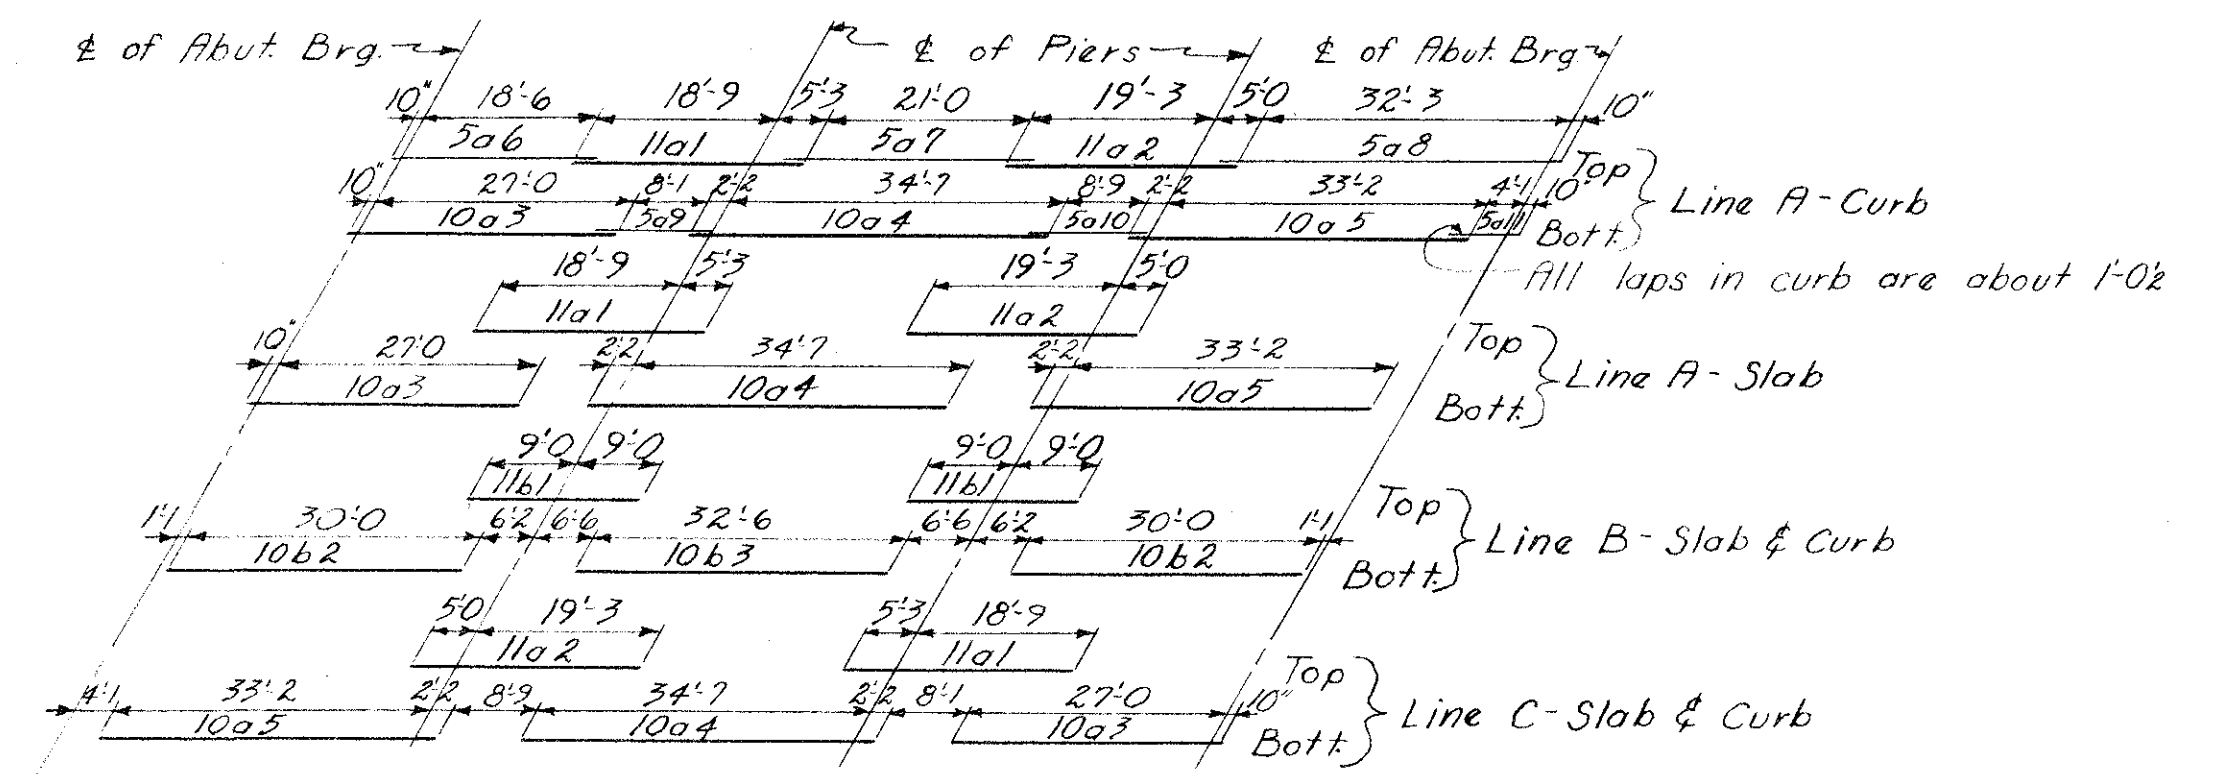 ℄ of Abut. Brg. ℄ of Piers ℄ of Abut. Brg
10" 18'-6 18'-9 5'-3 21'-0 19'-3 5'-0 32'-3 10"
5a6 11a1 5a7 11a2 5a8
10" 27'-0 8'-1 2'-2 34'-7 8'-9 2'-2 33'-2 4'-1 10" Top
10a3 5a9 10a4 5a10 10a5 5a11 Bott. Line A-Curb
18'-9 5'-3 19'-3 5'-0 All laps in curb are about 1'-0½
11a1 11a2
10" 27'-0 2'-2 34'-7 2'-2 33'-2 Top
10a3 10a4 10a5 Bott. Line A-Slab
9'-0 9'-0 9'-0 9'-0
11b1 11b1
1'-1 30'-0 6'-2 6'-6 32'-6 6'-6 6'-2 30'-0 1'-1 Top
10b2 10b3 10b2 Bott. Line B-Slab & Curb
5'-0 19'-3 5'-3 18'-9
11a2 11a1
4'-1 33'-2 2'-2 8'-9 34'-7 2'-2 8'-1 27'-0 10" Top
10a5 10a4 10a3 Bott. Line C-Slab & Curb